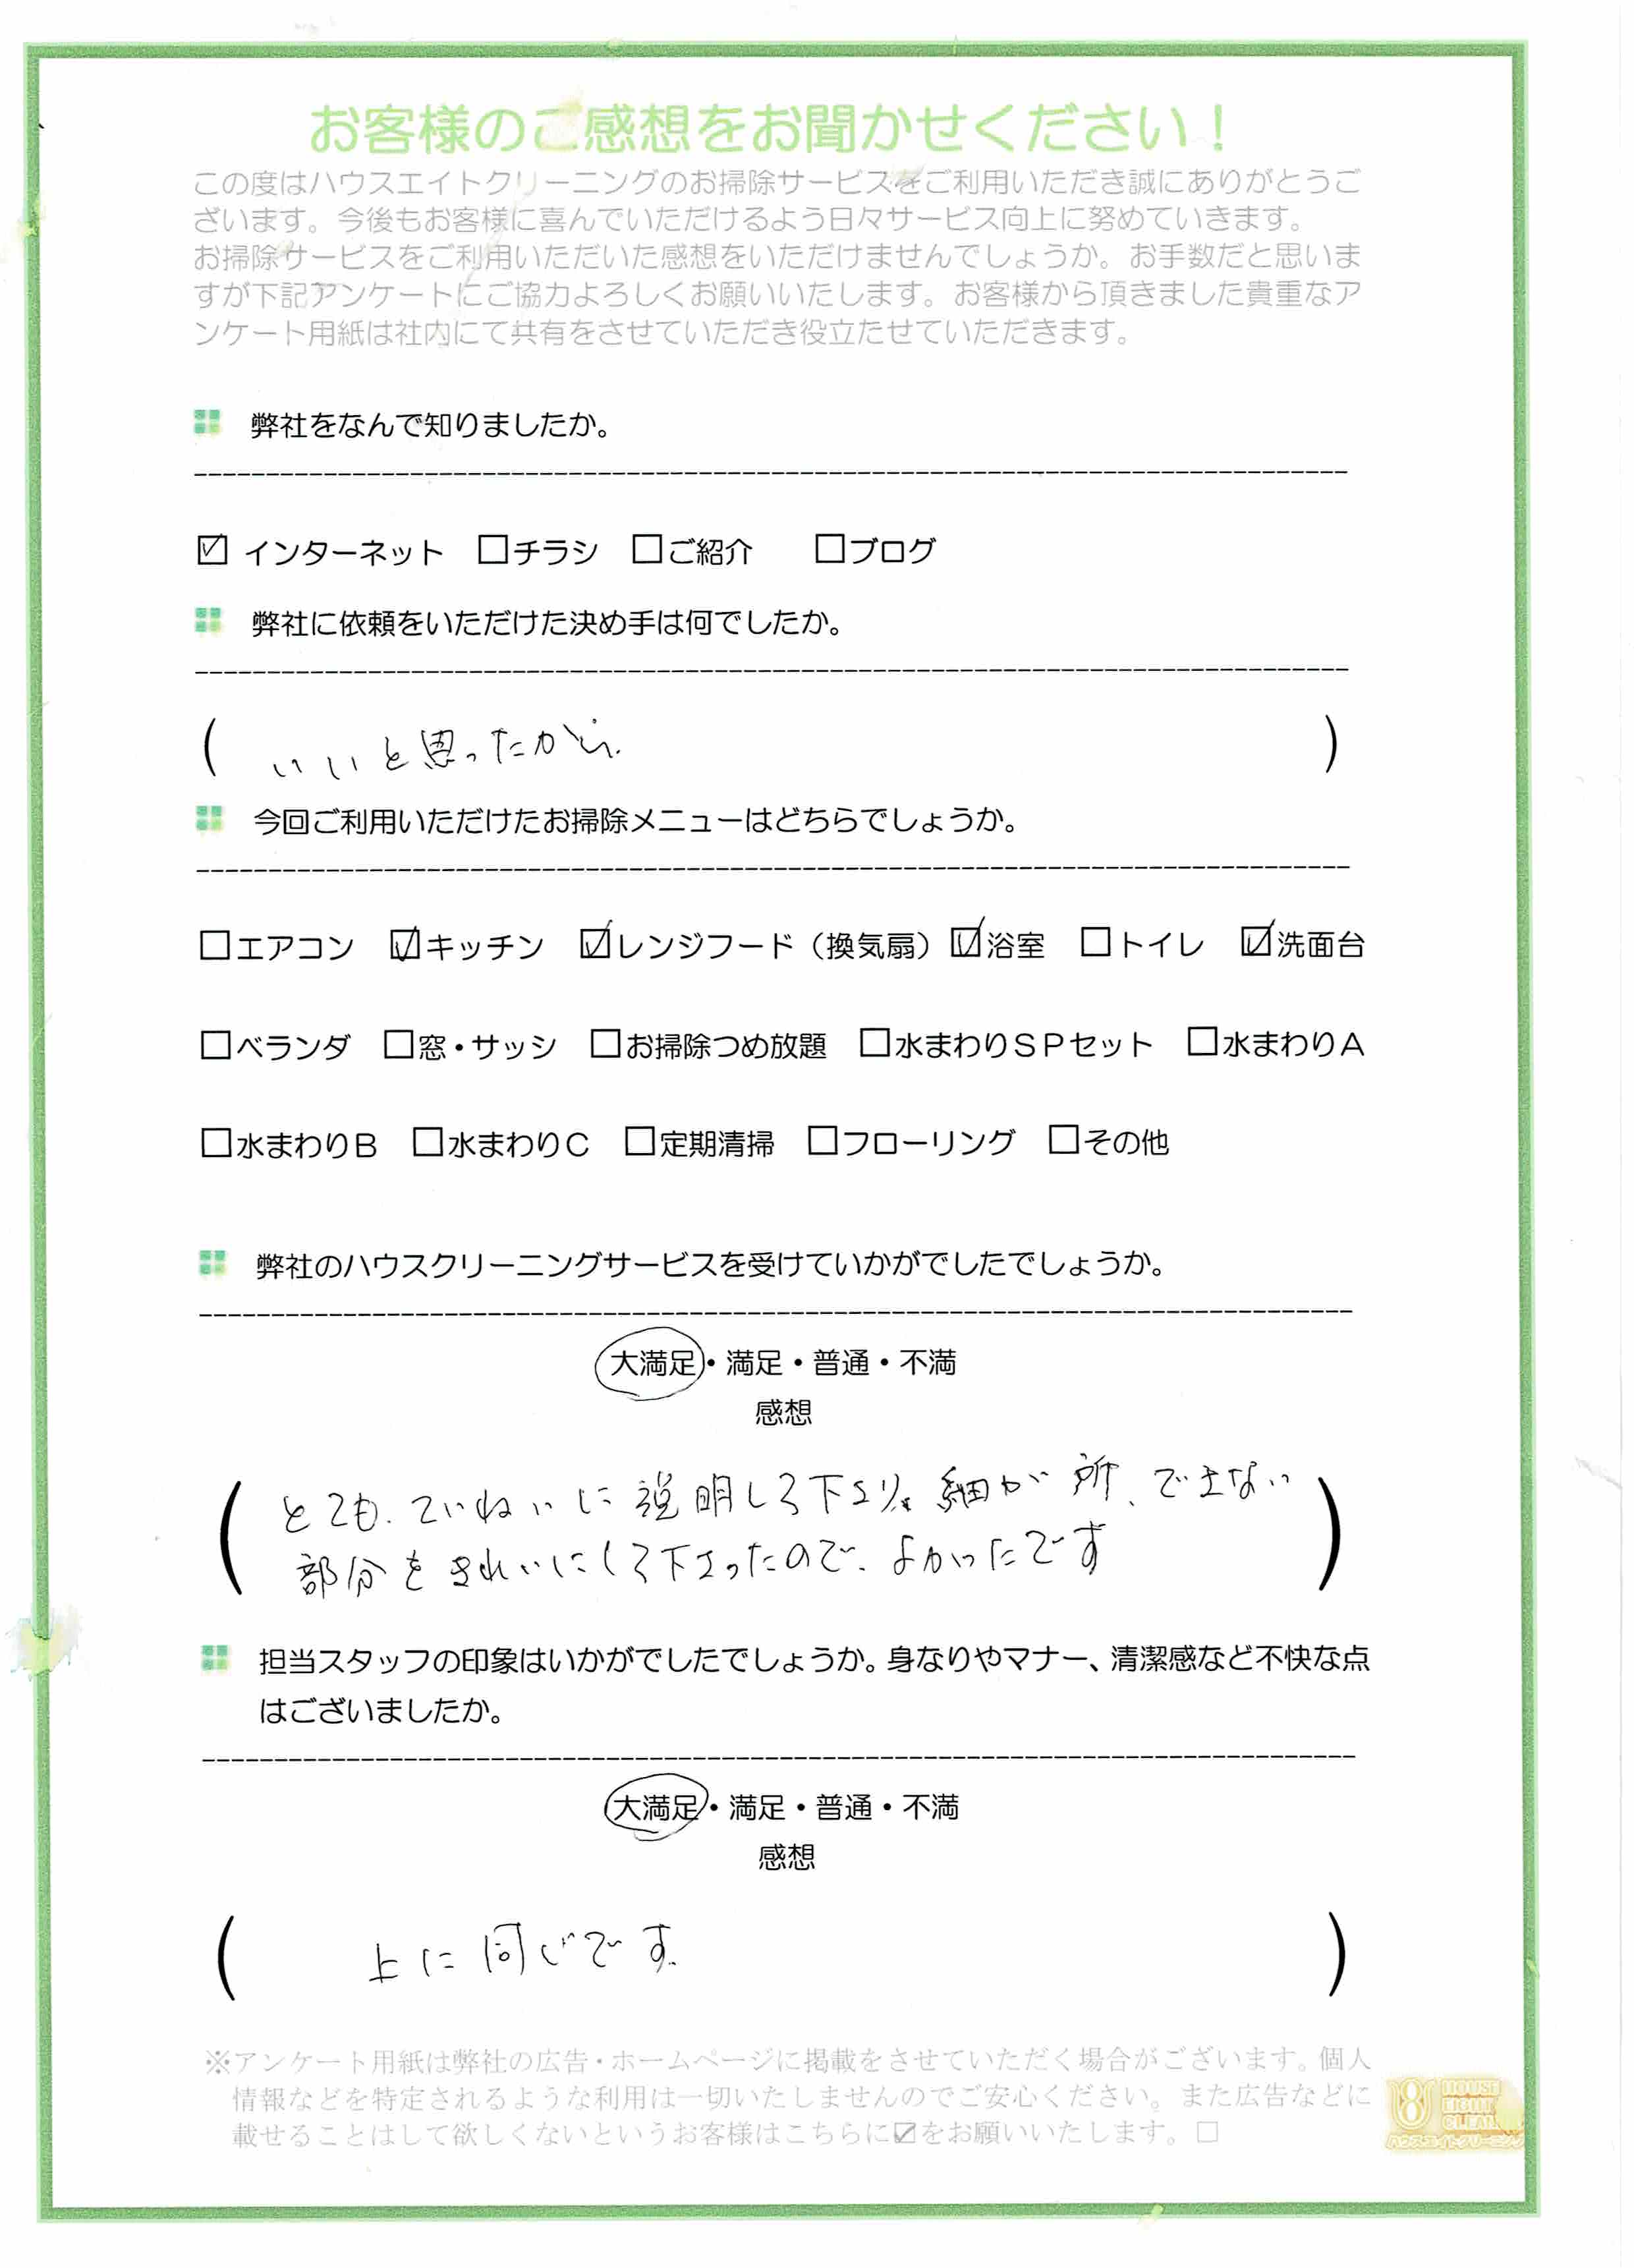 お客様のご感想をお聞かせください！
この度はハウスエイトクリーニングのお掃除サービスをご利用いただき誠にありがとうご
ざいます。今後もお客様に喜んでいただけるよう日々サービス向上に努めていきます。
お掃除サービスをご利用いただいた感想をいただけませんでしょうか。お手数だと思いま
すが下記アンケートにご協力よろしくお願いいたします。お客様から頂きました貴重なア
ンケート用紙は社内にて共有をさせていただき役立たせていただきます。
弊社をなんで知りましたか。
☑ インターネット □チラシ □ご紹介 □ブログ
弊社に依頼をいただけた決め手は何でしたか。
( いいと思ったから. )
今回ご利用いただけたお掃除メニューはどちらでしょうか。
□エアコン ☑キッチン ☑レンジフード（換気扇）☑浴室 □トイレ ☑洗面台
□ベランダ □窓・サッシ □お掃除つめ放題 □水まわりＳＰセット □水まわりＡ
□水まわりＢ □水まわりＣ □定期清掃 □フローリング □その他
弊社のハウスクリーニングサービスを受けていかがでしたでしょうか。
大満足・満足・普通・不満
感想
( とても、ていねいに説明して下さり、細か 所、できない
部分をきれいにして下さったので、よかったです )
担当スタッフの印象はいかがでしたでしょうか。身なりやマナー、清潔感など不快な点
はございましたか。
大満足・満足・普通・不満
感想
( 上に同じです. )
※アンケート用紙は弊社の広告・ホームページに掲載をさせていただく場合がございます。個人
情報などを特定されるような利用は一切いたしませんのでご安心ください。また広告などに
載せることはして欲しくないというお客様はこちらに☑をお願いいたします。□
8 HOUSE
EIGHT
CLEAN
ハウスエイトクリーニング